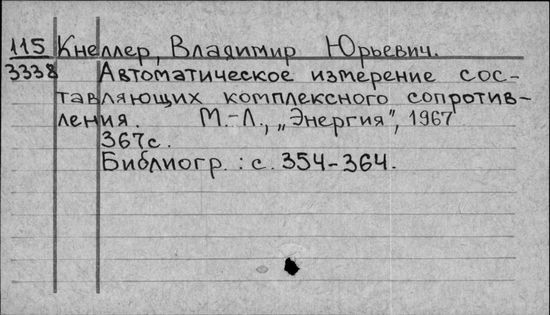 115 Кнеллер, Владимир Юрьевич.
3338 Автоматическое измерение сос-
тавляющих комплексного сопротив-
ления. М.-Л., „Энергия", 1967
367с.
Библиогр.: с. 354-364.